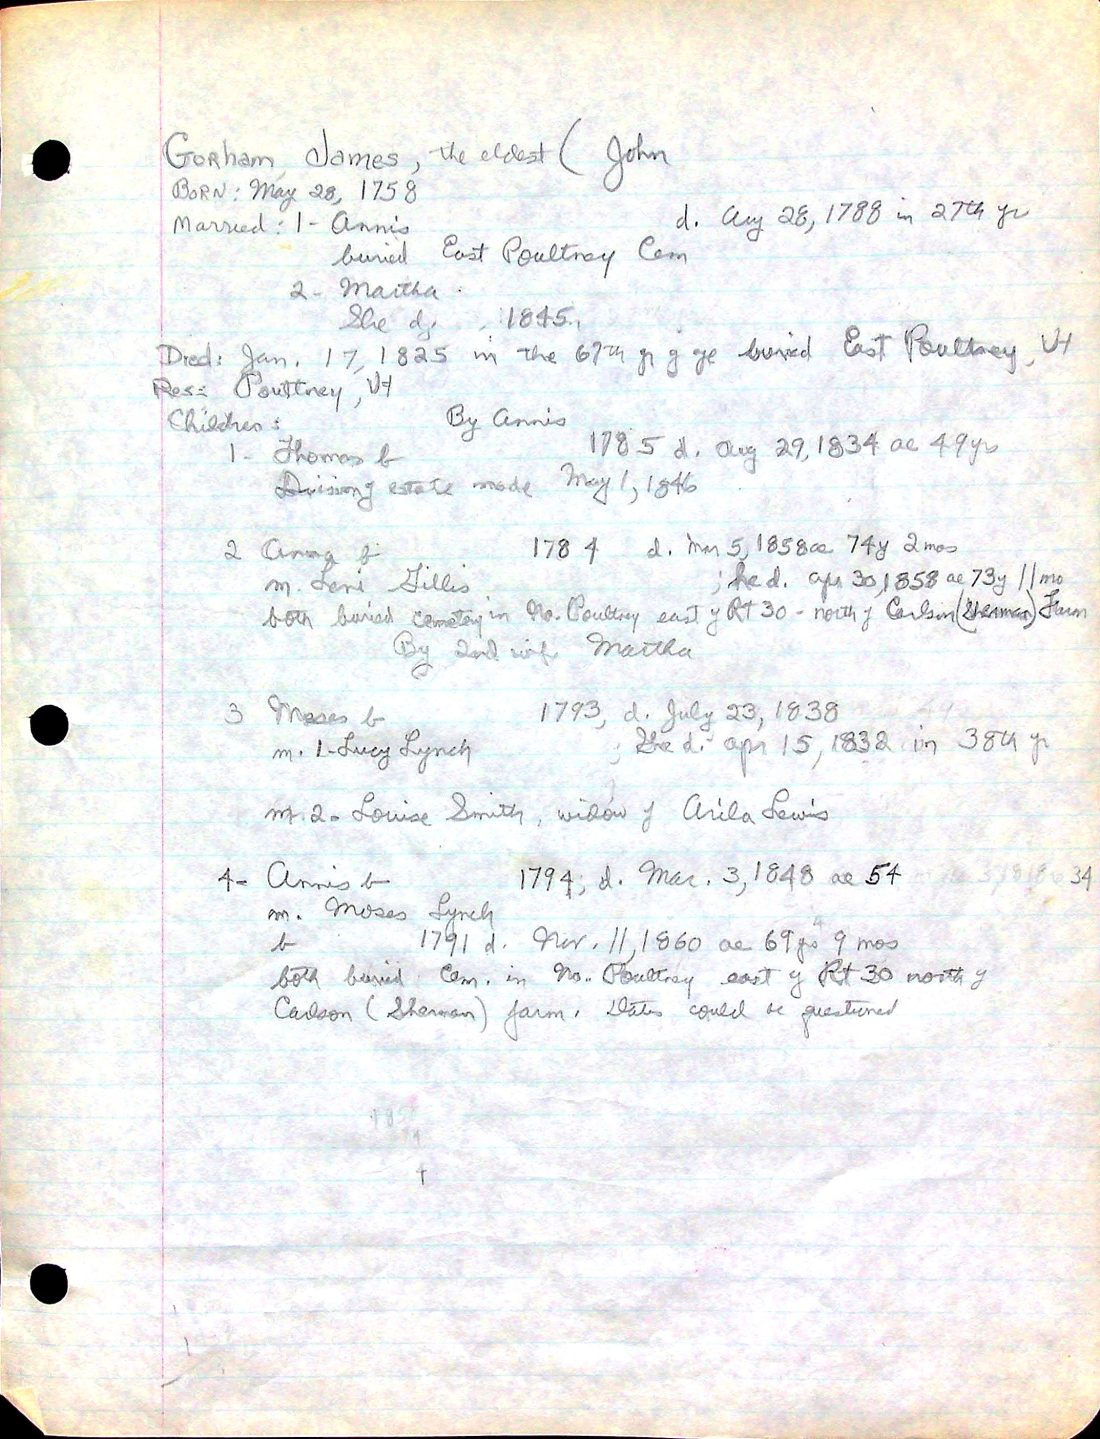 Gorham James, the eldest ( John
Born: May 28, 1758
Married: 1- Annis d. Aug 28, 1788 in 27th yr
buried East Poultney Cem
2- Martha
She d. 1845.
Died: Jan. 17, 1825 in the 67th yr of age buried East Poultney, Vt
Res: Poultney, Vt
Children: By Annis
1- Thomas b 1785 d. Aug 29, 1834 ae 49yrs
Division of estate made May 1, 1846
2 b 1784 d. Mar 5, 1858 ae 74y 2mos
m. Levi Gillis ; he d. Apr 30, 1858 ae 73y 11mo
both buried cemetery in No. Poultney east of Rt 30 - north of Carlson (Sherman) Farm
By 2nd wife Martha
3 Moses b 1793, d. July 23, 1838
m. 1- Lucy Lynch ; She d. Apr 15, 1832 in 38th yr
m. 2- Louise Smith, widow of Lewis
4- Annis b 1794, d. Mar. 3, 1848 ae 54 34
m. Moses Lynch
b 1791 d. Nov. 11, 1860 ae 69yrs 9 mos
both buried Cem. in No. Poultney east of Rt 30 north of
Carlson (Sherman) farm. Dates could be questioned